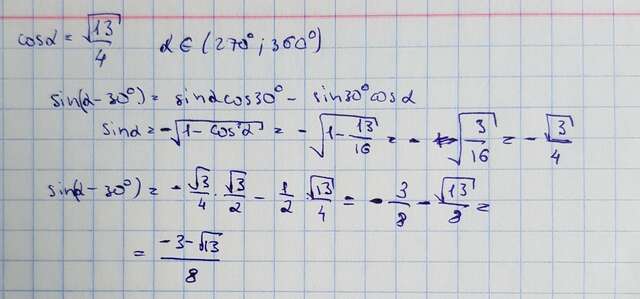 cosα = √13/4   α ∈ (270°; 360°)
sin(α - 30°) = sinα cos30° - sin30° cosα
sinα = -√(1 - cos²α) = -√(1 - 13/16) = - √(3/16) = - √3/4
sin(α - 30°) = - √3/4 · √3/2 - 1/2 · √13/4 = - 3/8 - √13/8 =
= (-3 - √13)/8